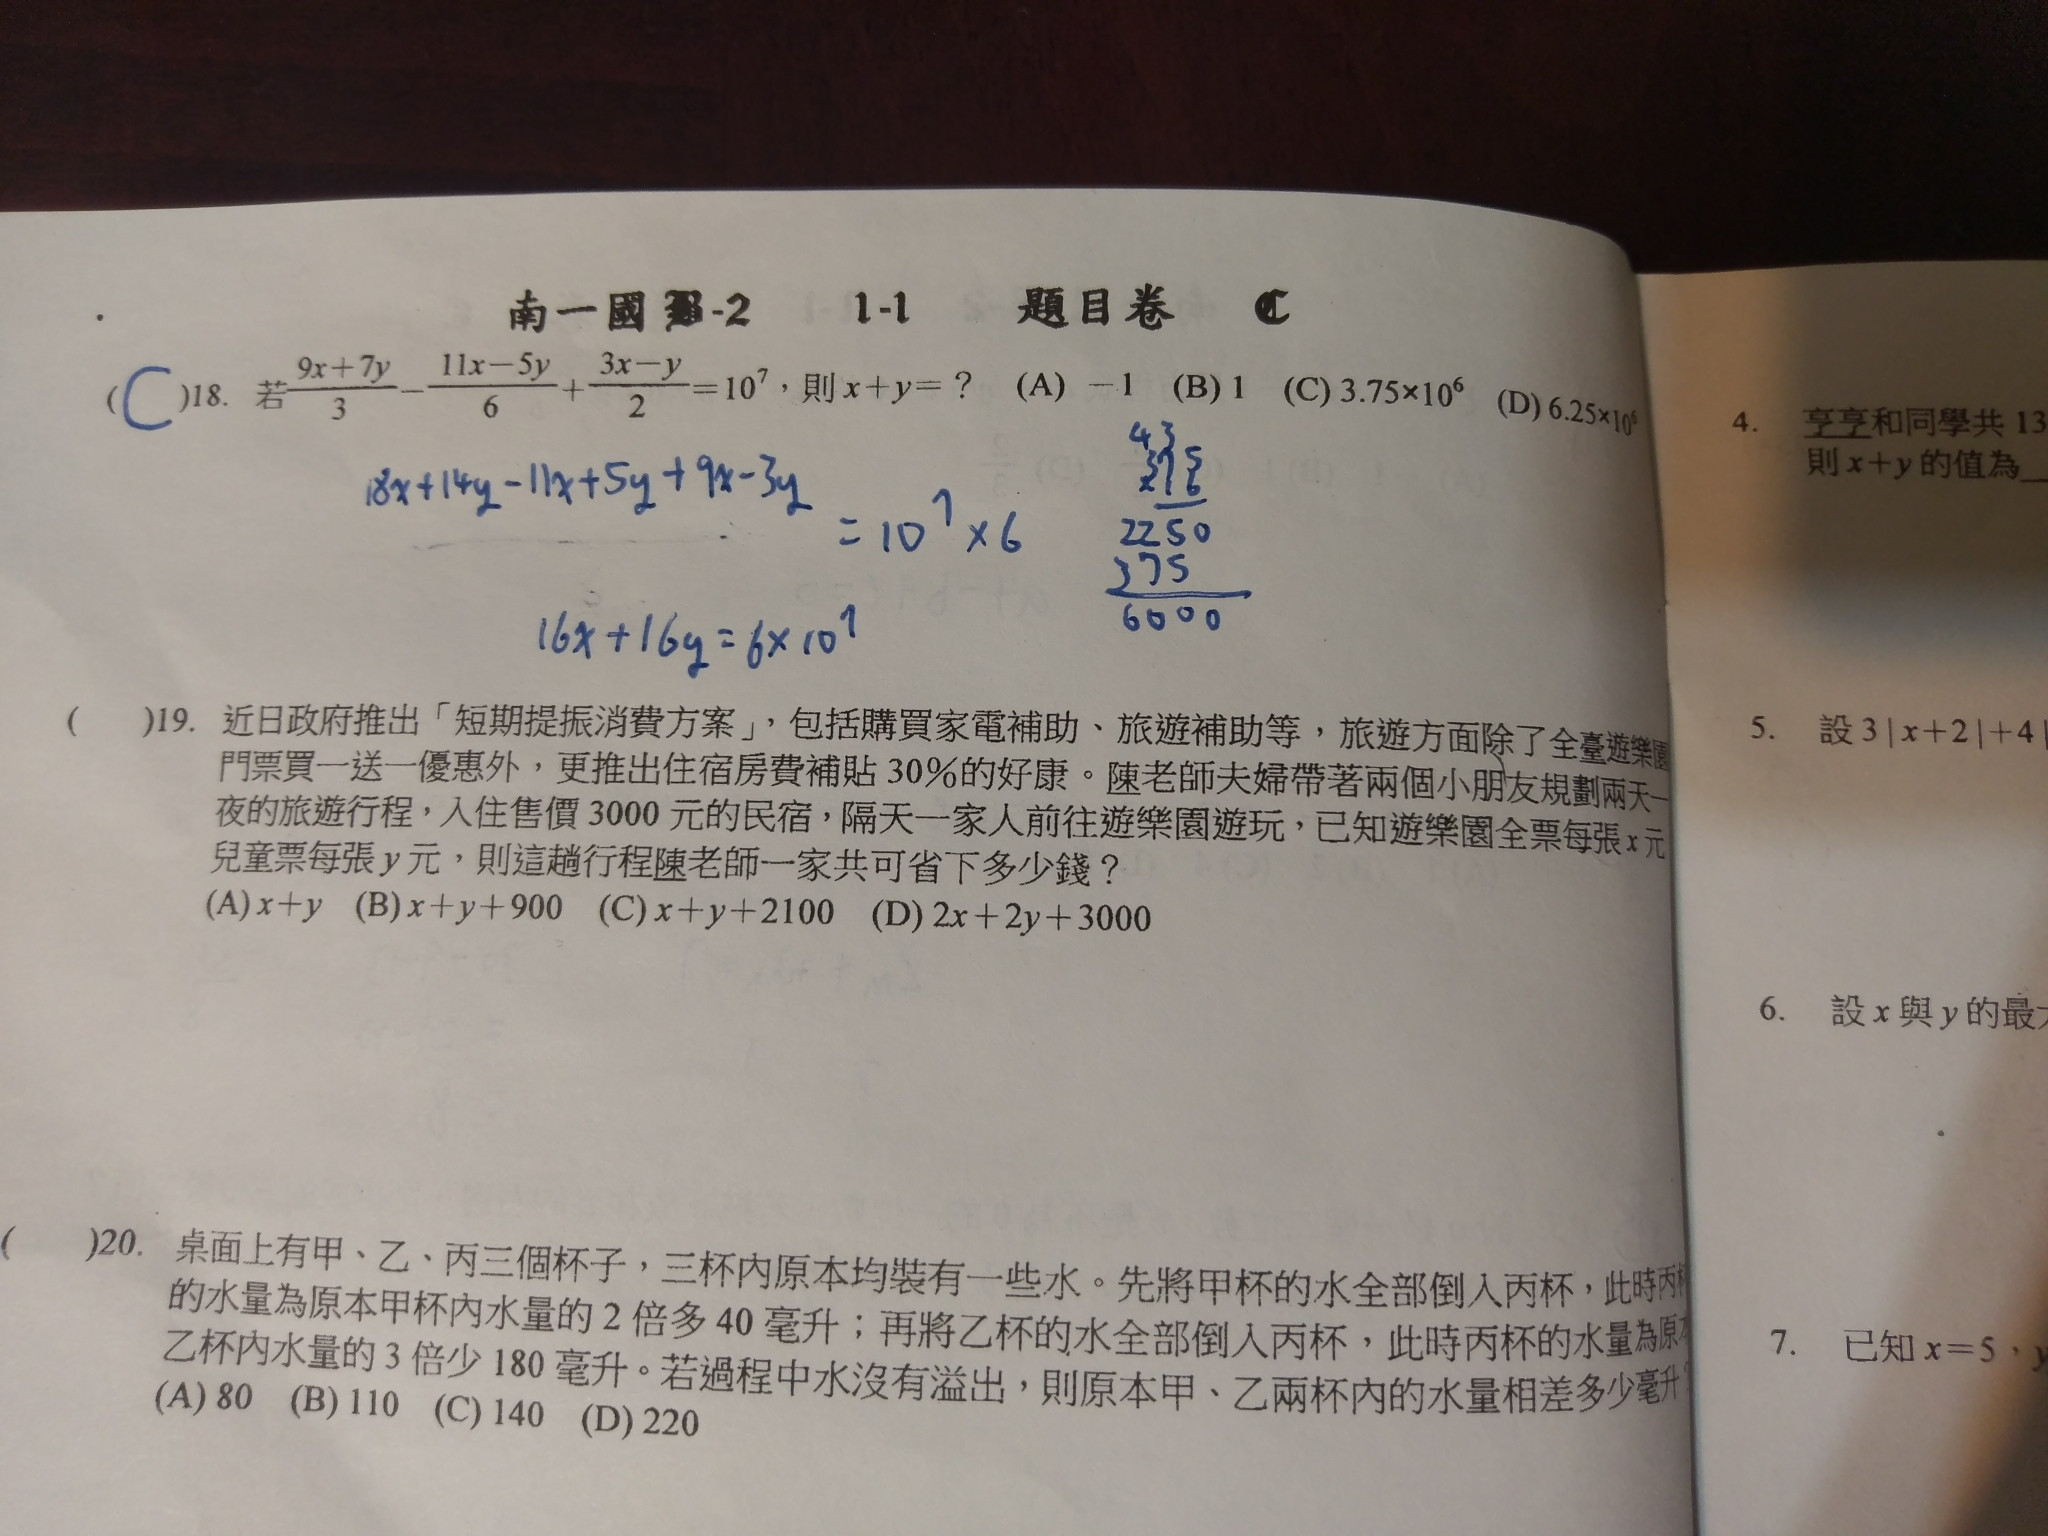 南一國 -2 1-1 題目卷 C
(C)18. 若(9x+7y)/3−(11x−5y)/6+(3x−y)/2=10⁷，則x+y=？ (A) −1 (B) 1 (C) 3.75×10⁶ (D) 6.25×10⁶
18x+14y-11x+5y+9x-3y
= 10⁷ × 6
16x+16y=6×10⁷
43
375
×16
2250
375
6000
( )19. 近日政府推出「短期提振消費方案」，包括購買家電補助、旅遊補助等，旅遊方面除了全臺遊樂園
門票買一送一優惠外，更推出住宿房費補貼 30%的好康。陳老師夫婦帶著兩個小朋友規劃兩天一
夜的旅遊行程，入住售價 3000 元的民宿，隔天一家人前往遊樂園遊玩，已知遊樂園全票每張 x 元
兒童票每張 y 元，則這趟行程陳老師一家共可省下多少錢？
(A) x+y (B) x+y+900 (C) x+y+2100 (D) 2x+2y+3000
( )20. 桌面上有甲、乙、丙三個杯子，三杯內原本均裝有一些水。先將甲杯的水全部倒入丙杯，此時丙杯
的水量為原本甲杯內水量的 2 倍多 40 毫升；再將乙杯的水全部倒入丙杯，此時丙杯的水量為原本
乙杯內水量的 3 倍少 180 毫升。若過程中水沒有溢出，則原本甲、乙兩杯內的水量相差多少毫升？
(A) 80 (B) 110 (C) 140 (D) 220
4. 亨亨和同學共 13
則 x+y 的值為
5. 設 3|x+2|+4|
6. 設 x 與 y 的最
7. 已知 x=5，y